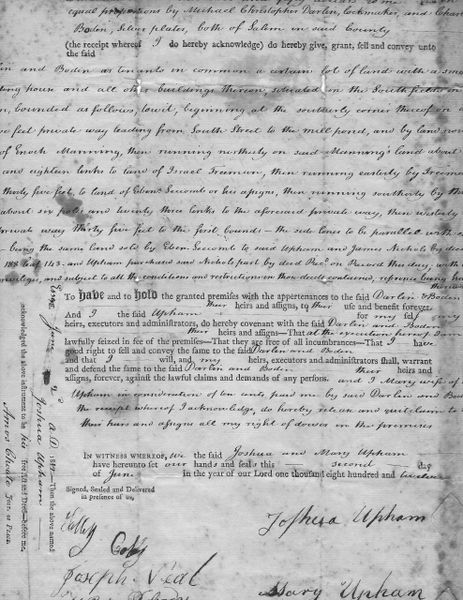 equal proportions by Michael Christopher Darlin, Cockmaker, and
Boden, Silver plater, both of Salem in said County
(the receipt whereof I do hereby acknowledge) do hereby give, grant, sell and convey unto
the said
in and Boden as tenants in common a certain lot of land with a small
house and all other buildings thereon, situated in the South fields in
bounded as follows, towit, beginning at the southerly corner thereof on a
feet private way leading from South Street to the mill pond, and by land now
of Enoch Manning, then running northerly on said Manning's land about
and eighteen links to land of Israel Freeman, then running easterly by Freeman
thirty five feet, to land of Eben Secomb or his assigns, then running southerly by
about six poles and twenty three links to the aforesaid private way, then westerly
private way thirty five feet to the first bounds - the side lines to be parallel with
being the same land sold by Eben Secomb to said Upham and James Nichols by deed
leaf 143 and Upham purchased said Nichols part by deed on Record this day, with
and subject to all the conditions and restrictions in their deed contained, reference being
To have and to hold the granted premises with the appertenances to the said Darlin & Boden
their heirs and assigns, to their use and benefit forever.
And I the said Upham for my self my
heirs, executors and administrators, do hereby covenant with the said Darlin and Boden
their heirs and assigns - That at the execution hereof I am
lawfully seized in fee of the premises - That they are free of all incumbrances - That I have
good right to sell and convey the same to the said Darlin and Boden
and that I will, and my heirs, executors and administrators shall, warrant
and defend the same to the said Darlin and Boden their heirs and
assigns, forever, against the lawful claims and demands of any persons. and I Mary wife of
Upham in consideration of ten cents paid me by said Darlin and
the receipt whereof I acknowledge, do hereby release and quitclaim to
their heirs and assigns all my right of dower in the premises
IN WITNESS WHEREOF, We the said Joshua and Mary Upham
have hereunto set our hands and seals this second day
of June in the year of our Lord one thousand eight hundred and
Signed, Sealed and Delivered
in presence of us,
Joshua Upham
Joseph Neal
Mary Upham
Essex June 2d A. D. Then the above named
Joshua Upham
acknowledged the above instrument to be his free Act and Deed - before me,
Amos Choate Just. of Peace